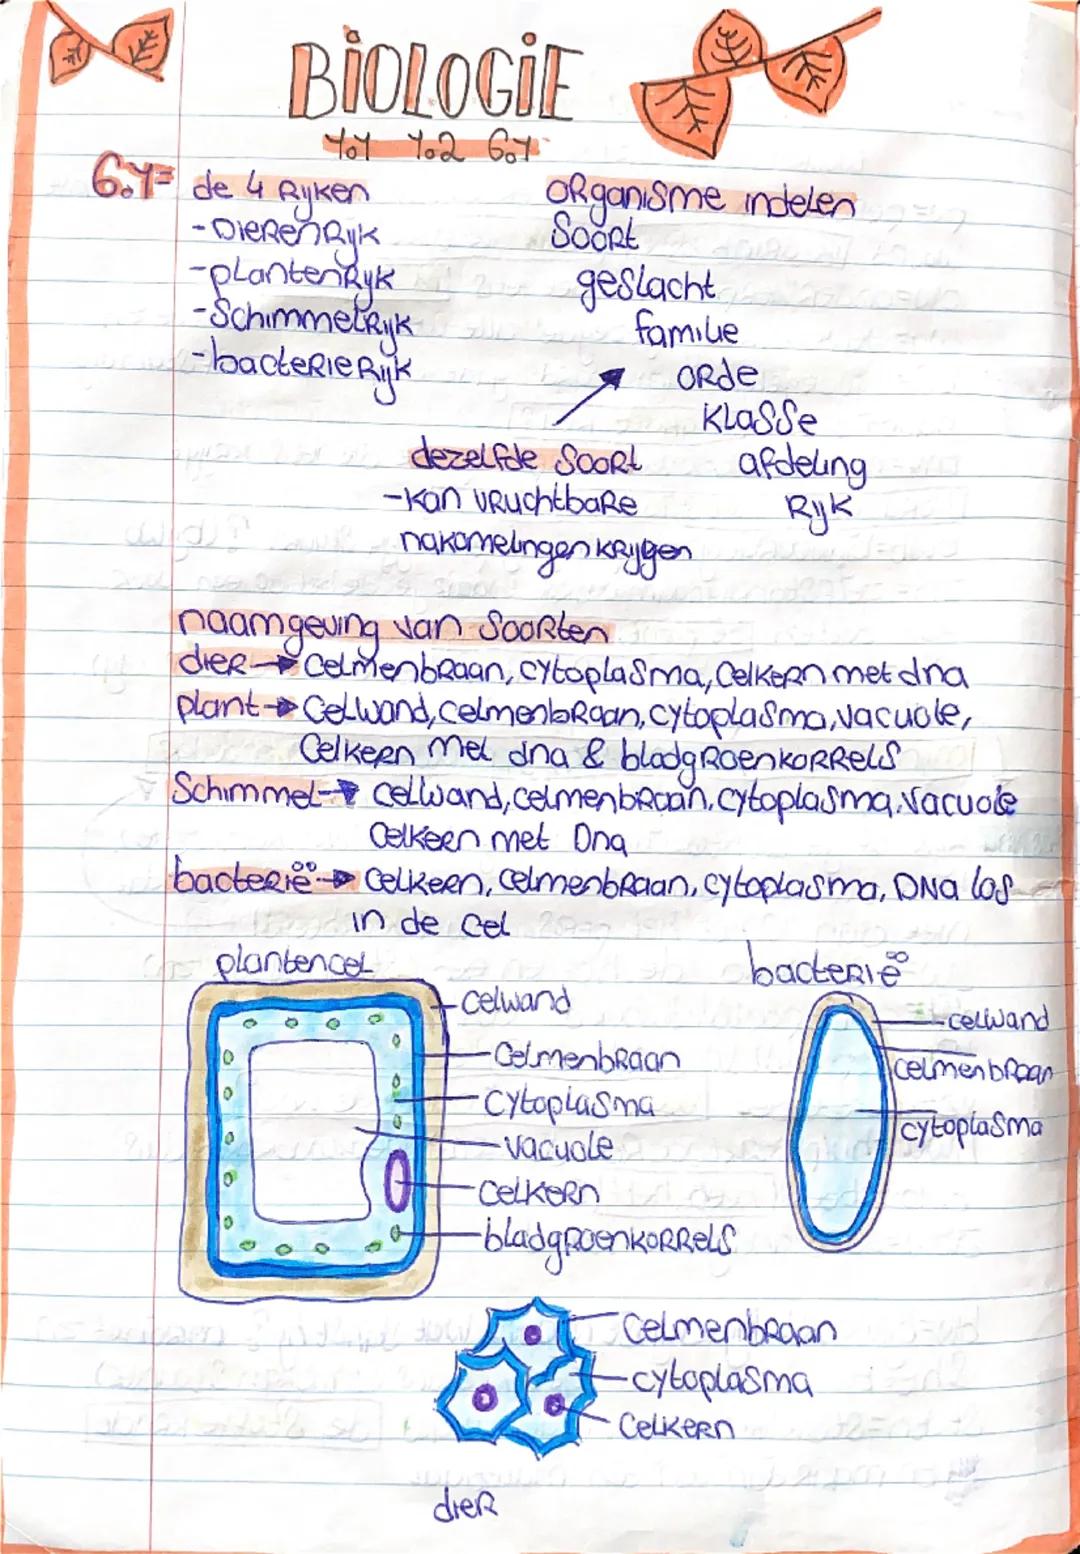 BiOLOGiE
1.1 1.2 6.1
6.1= de 4 Rijken
-DieRenRijk
-plantenRijk
-SchimmelRijk
-bacteRieRijk
ORganiSme indelen
SooRt
geslacht
familie
ORde
KlaSSe
afdeling
Rijk
dezelfde SooRt
-kan vRuchtbaRe
nakomelingen kRijgen
naamgeving van SooRten
dieR → Celmenbraan, cytoplaSma, CelkeRn met dna
plant → Celwand, celmenbRaan, cytoplaSma, vacuole,
CelkeRn met dna & bladgRoenkoRRelS
Schimmel → cellwand, celmenbRaan, cytoplaSma, vacuole
CelkeRn met Dna
bacteRië → CelkeRn, celmenbRaan, cytoplaSma, DNA los
in de cel
plantencel
celwand
CelmenbRaan
cytoplaSma
vacuole
CelkeRn
bladgRoenkoRRelS
bacteRië
celwand
celmenbRaan
cytoplaSma
CelmenbRaan
cytoplaSma
CelkeRn
dieR